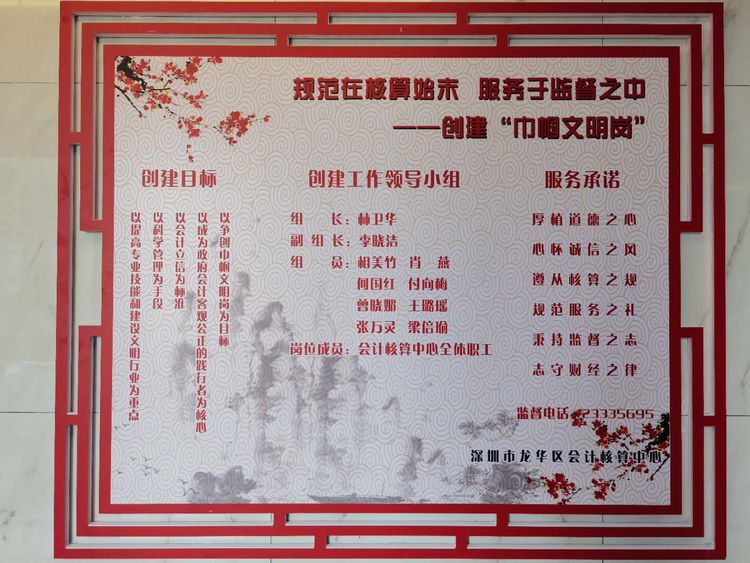 规范在核算始末 服务于监督之中
——创建“巾帼文明岗”
创建目标
以争创巾帼文明岗为目标
以成为政府会计客观公正的践行者为核心
以会计立信为标准
以科学管理为手段
以提高专业技能和建设文明行业为重点
创建工作领导小组
组 长：林卫华
副 组 长：李晓洁
组 员：相美竹 肖 燕
何国红 付向梅
曾晓媚 王璐瑶
张万灵 梁倍瑜
岗位成员：会计核算中心全体职工
服务承诺
厚植道德之心
心怀诚信之风
遵从核算之规
规范服务之礼
秉持监督之志
志守财经之律
监督电话：23335695
深圳市龙华区会计核算中心